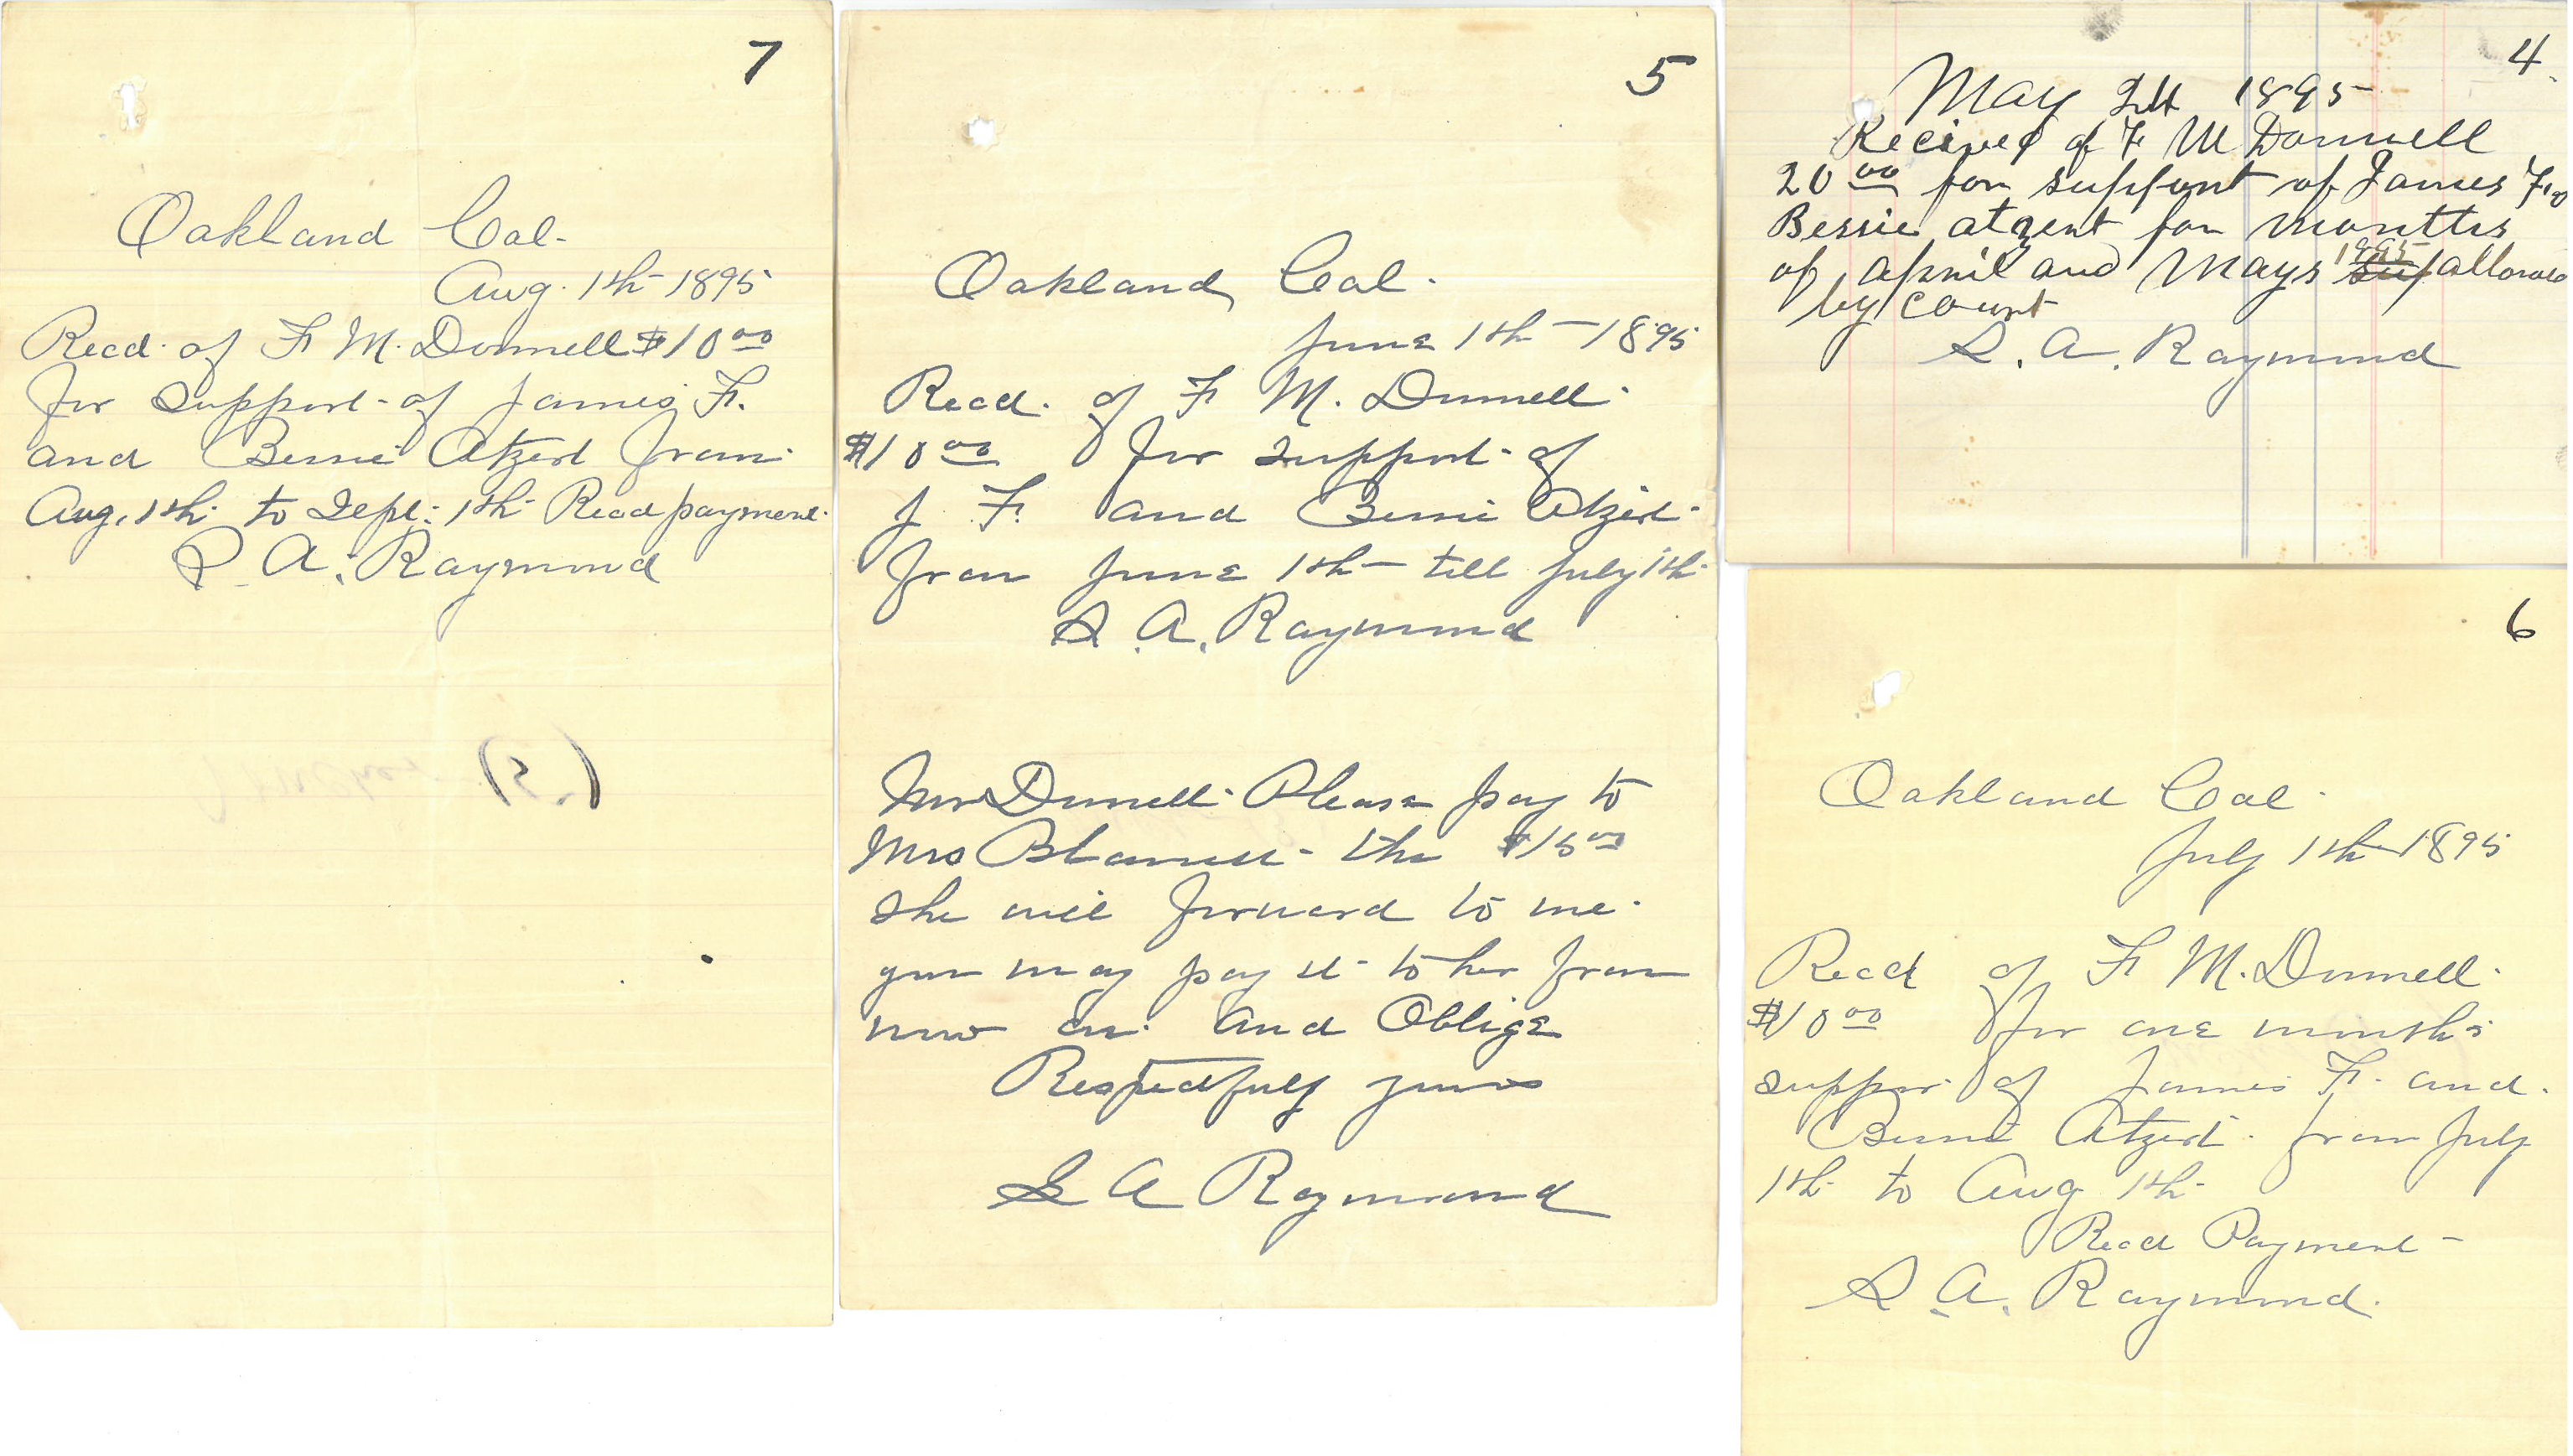 7
Oakland Cal.
Aug. 1th 1895
Recd. of F. M. Donnell $10 00
for support of James F.
and Bessie Atzert from
Aug. 1th to Sept. 1th Recd payment.
S. A. Raymond
(5)
5
Oakland Cal.
June 1th - 1895
Recd. of F M. Dunnell.
$10 00 for support of
J. F. and Bessie Atzert.
from June 1th - till July 1th
S. A. Raymond
Mr Dunnell. Please pay to
Mrs the $15 00
she will forward to me.
you may pay it to her from
now on. and Oblige
Respectfuly yours
S A Raymond
4
May 1895
Recived of F M Donnell
20 00 for support of James F.
Bessie atzert for months
of april and Mays 1895 sup allowed
by court
S. A. Raymond
6
Oakland Cal.
July 1th 1895
Recd of F. M. Dunnell.
$10 00 for one months
suppor of James F. and.
Bessie Atzert. from July
1th to Aug 1th
Recd Payment -
S. A. Raymond.